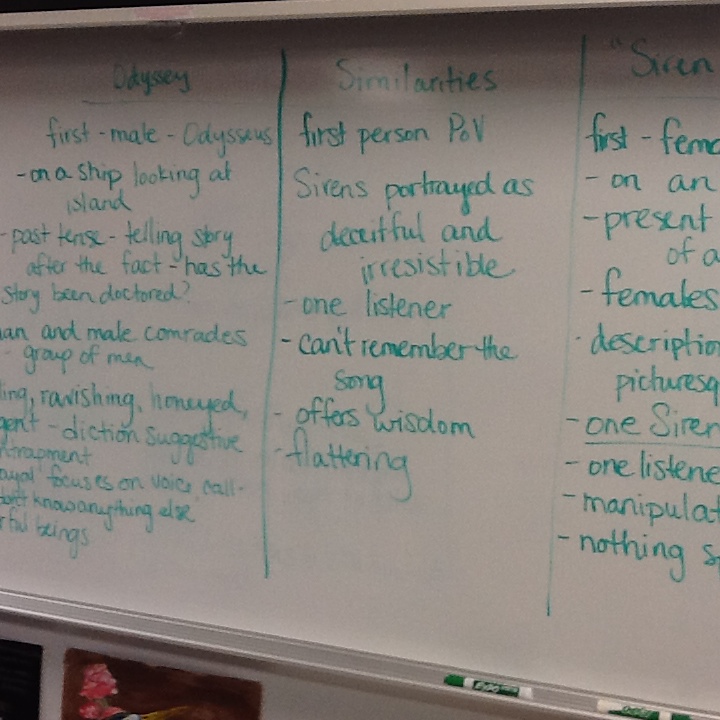 Odyssey
first - male - Odysseus
- on a ship looking at
island
- past tense - telling story
after the fact - has the
story been doctored?
and male comrades
- group of men
ravishing, honeyed,
- diction suggestive
focuses on voice call-
don't know anything else"
beings
Similarities
first person PoV
Sirens portrayed as
deceitful and
irresistible
- one listener
- can't remember the
song
- offers wisdom
- flattering
"Siren
first - fema
- on an
- present
of a
- females
- descriptio
picturesq
- one Siren
- one listene
- manipulat
- nothing s